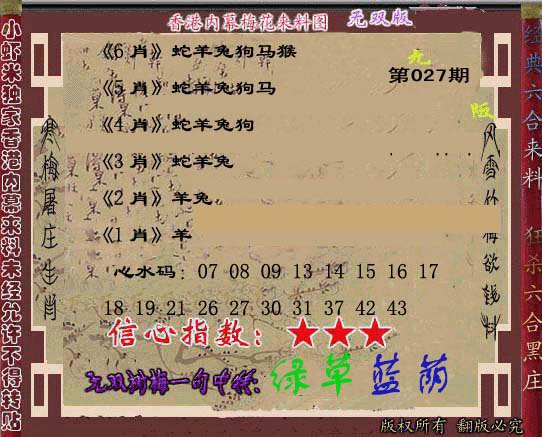 香港内幕梅花来料图 无双版
《6 肖》蛇羊兔狗马猴
无
第027期
《5 肖》蛇羊兔狗马
《4 肖》蛇羊兔狗
《3 肖》蛇羊兔
《2 肖》羊兔
《1 肖》羊
心水码：07 08 09 13 14 15 16 17
18 19 21 26 27 30 31 37 42 43
信心指数：★★★
无双刘梅一句中特：绿草蓝荫
版权所有 翻版必究
小虾米独家香港内幕来料未经允许不得转贴
寒梅屠庄生肖
风雪竹梅欲钱料
经典六合来料 狂杀六合黑庄